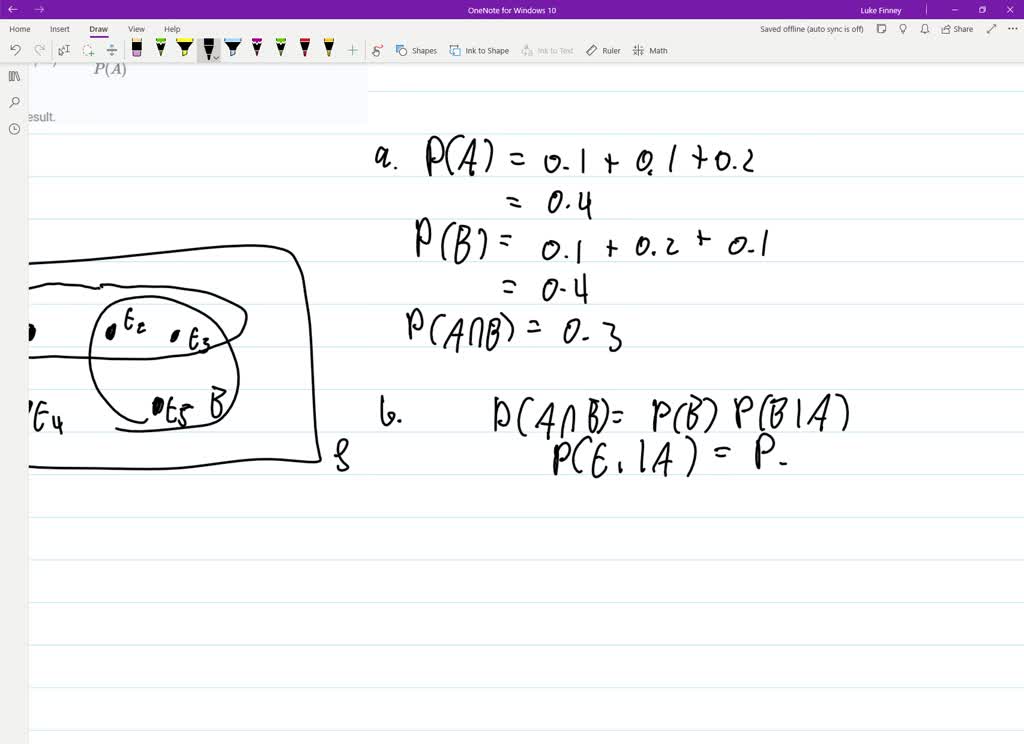 OneNote for Windows 10
Luke Finney
Home Insert Draw View Help
Saved offline (auto sync is off)
Share
Shapes Ink to Shape Ink to Text Ruler Math
P(A)
esult.
a. P(A) = 0.1 + 0.1 + 0.2
= 0.4
P(B) = 0.1 + 0.2 + 0.1
= 0.4
P(A∩B) = 0.3
E2 E3
E4 E5 B
S
b. P(A∩B) = P(B) P(B|A)
P(E1|A) = P